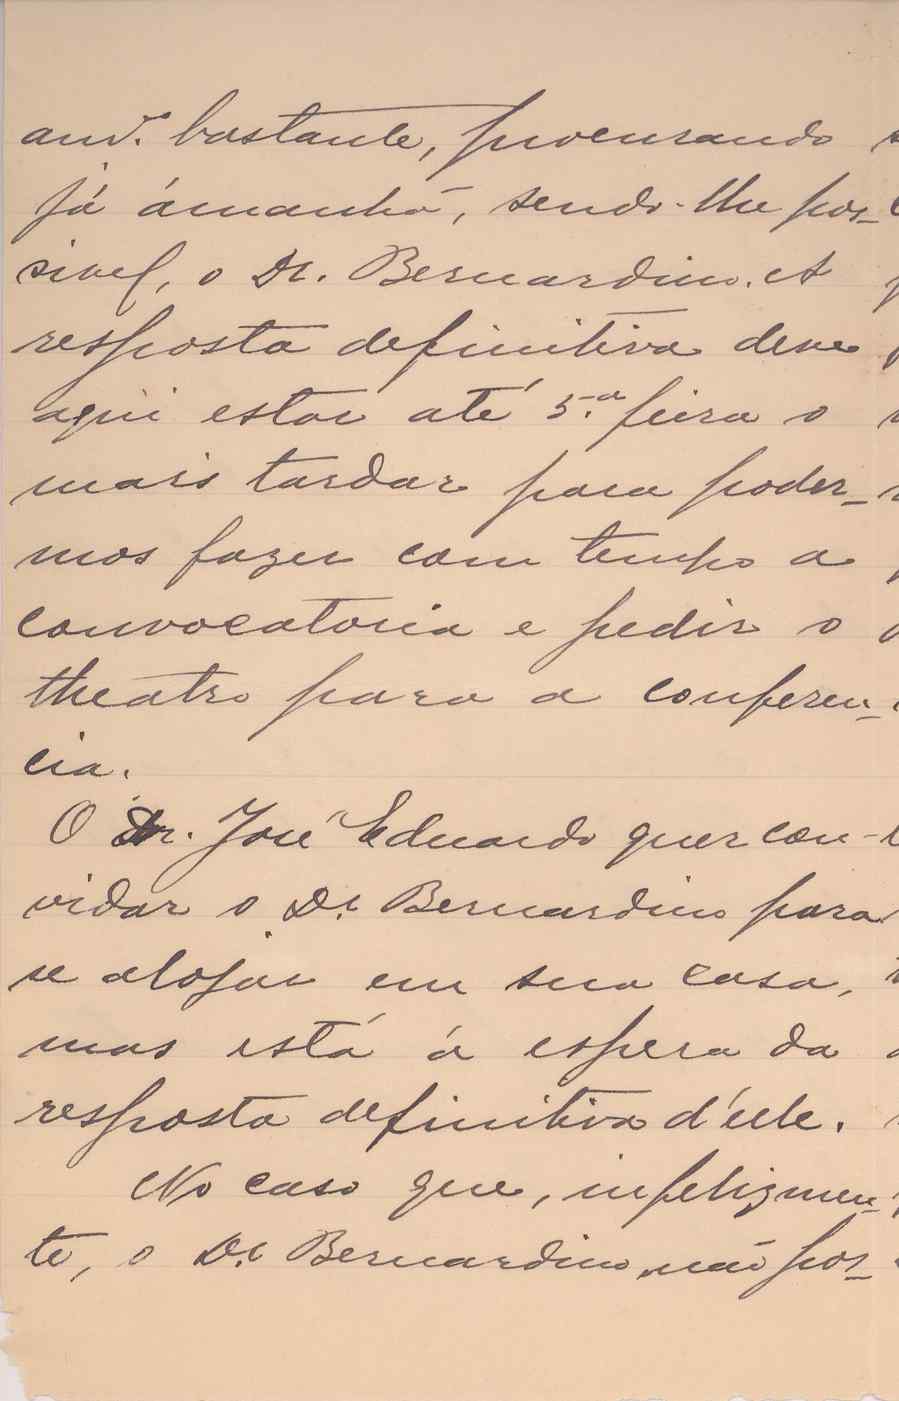 am.º bastante, procurando
já ámanhã, sendo-lhe pos-
sivel, o Dr. Bernardino. A
resposta definitiva deve
aqui estar até 5.ª feira o
mais tardar para poder-
mos fazer com tempo a
convocatoria e pedir o
theatro para a conferen-
cia.
O Dr. José Eduardo quer con-
vidar o Dr. Bernardino para
se alojar em sua casa,
mas está á espera da
resposta definitiva d'elle.
No caso que, infelizmen-
te, o Dr. Bernardino não pos-